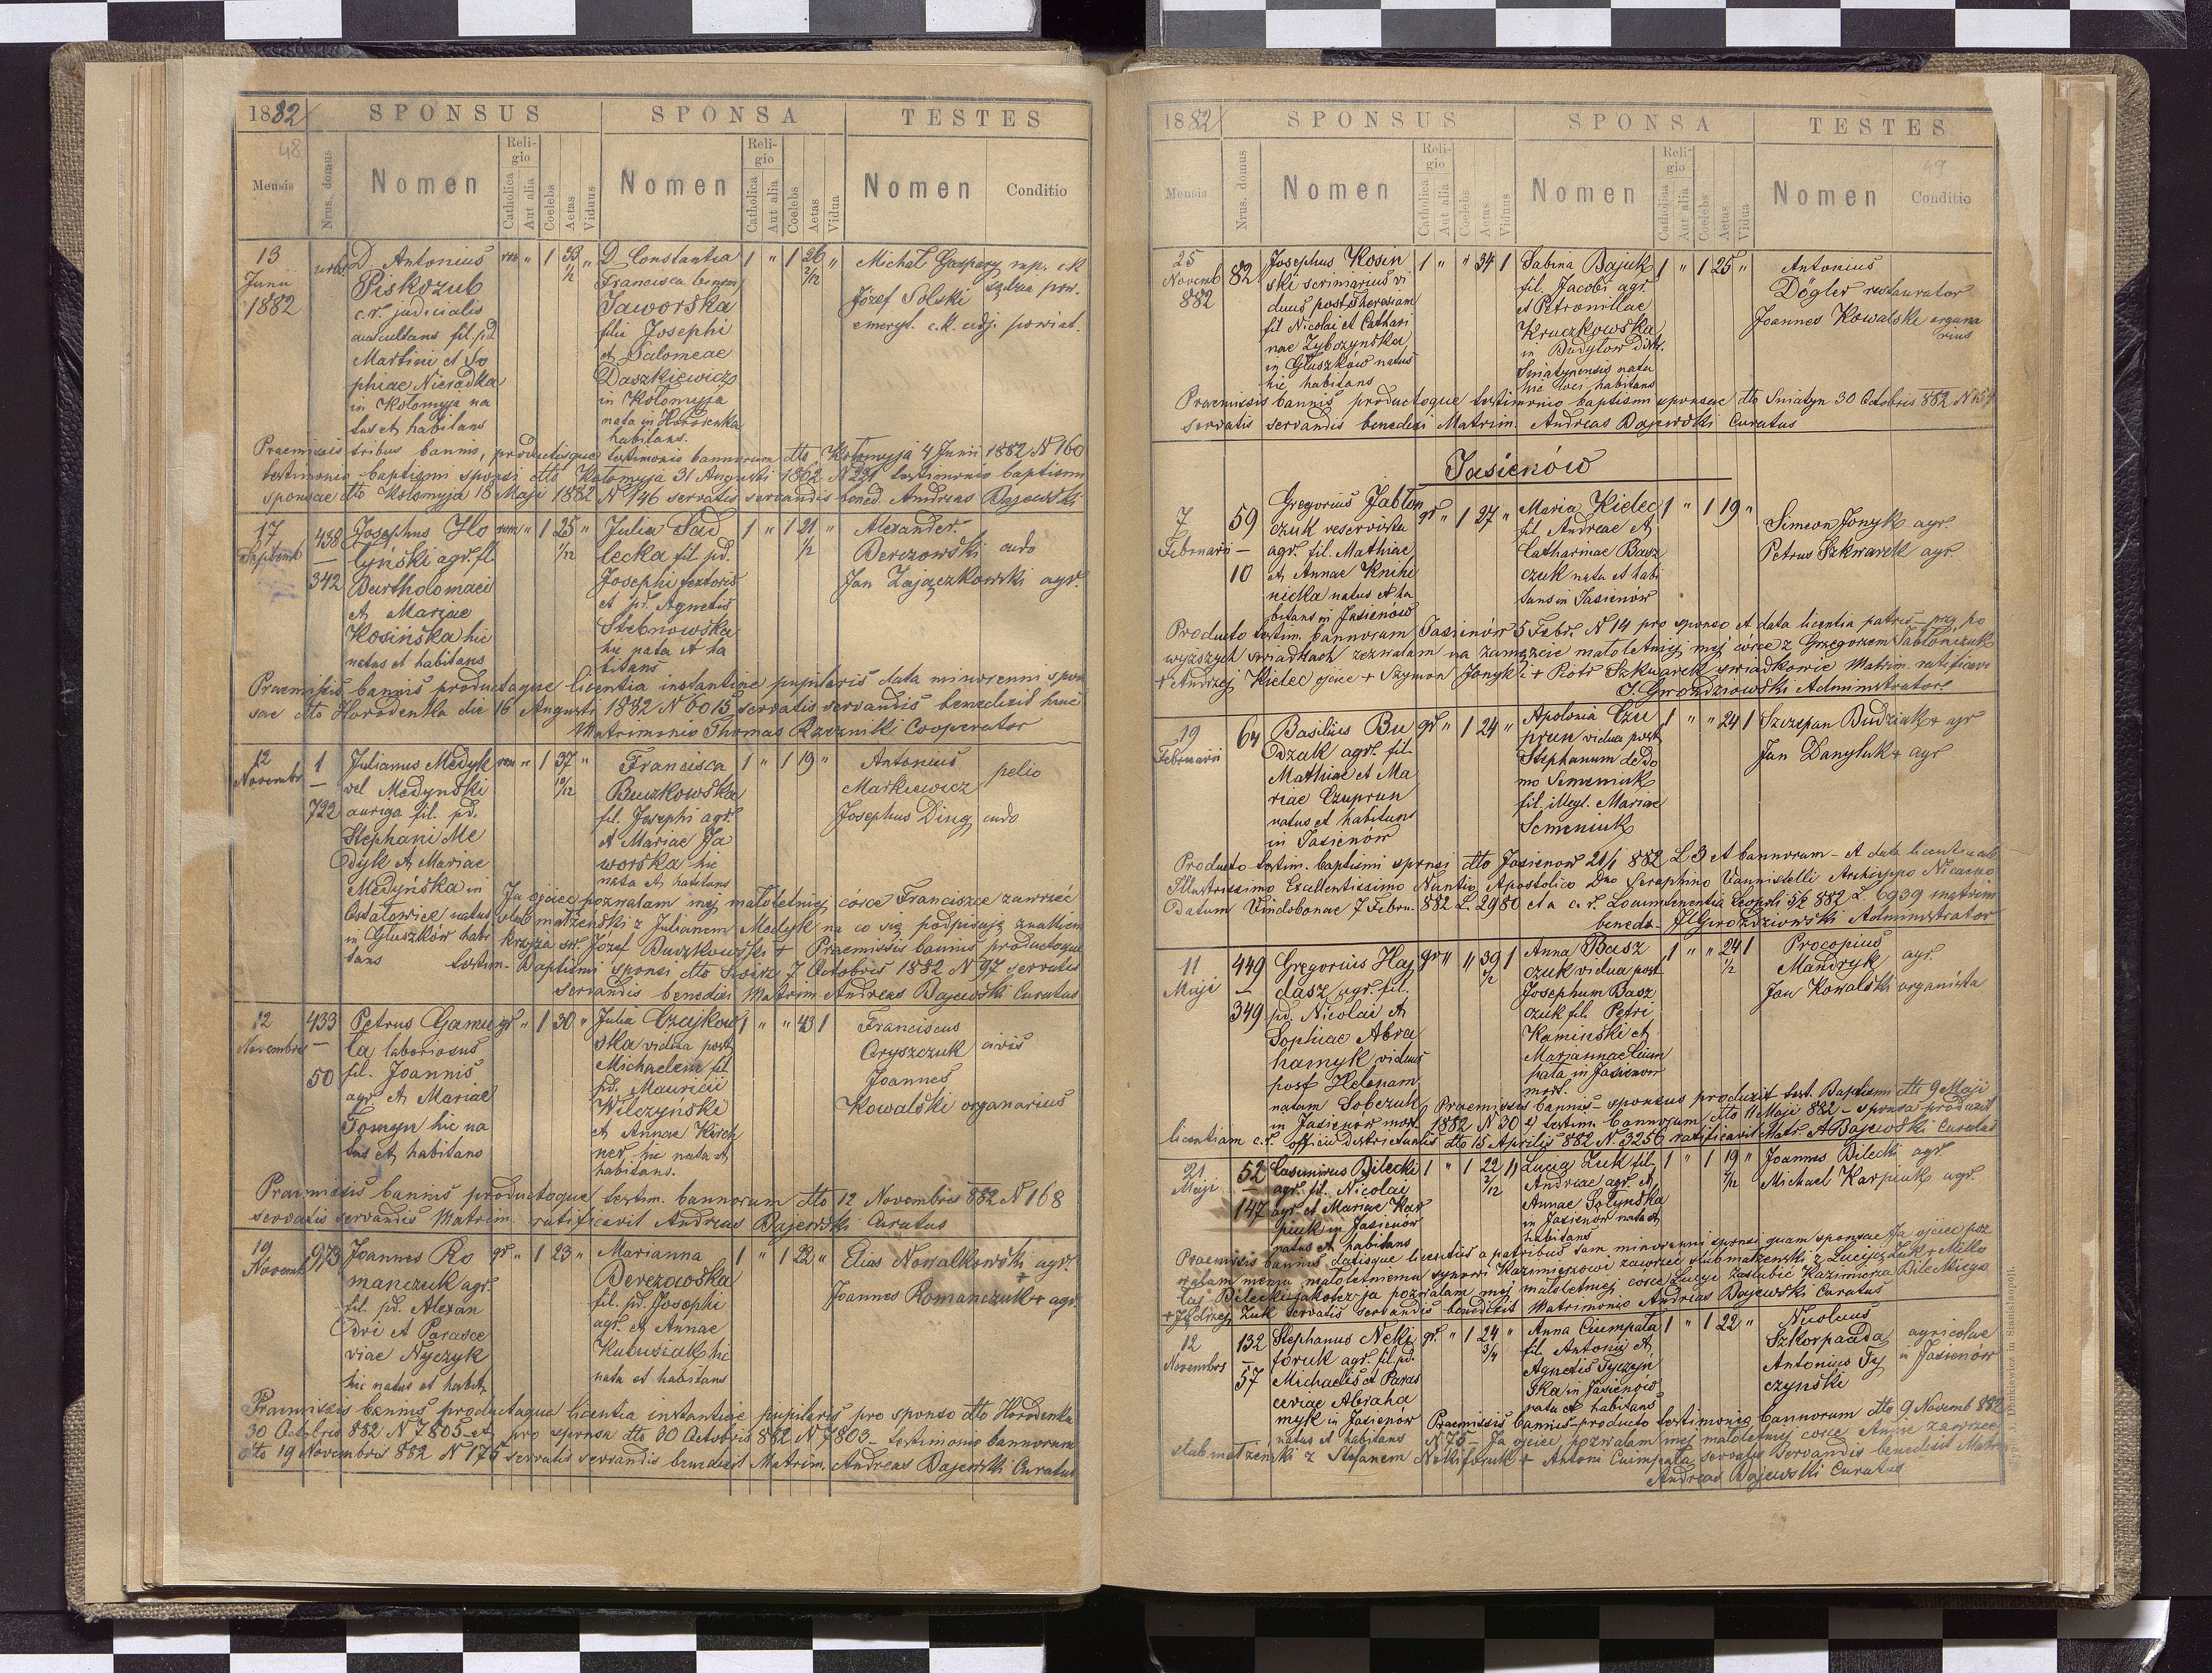 1882
SPONSUS
SPONSA
TESTES
48
Mensis
Nrus. domus
Nomen
Religio
Catholica
Aut alia
Coelebs
Aetas
Viduus
Nomen
Religio
Catholica
Aut alia
Coelebs
Aetas
Vidua
Nomen
Conditio
13
Junii
1882
urbs
D. Antonius
Piskozub
c.r. judicialis
auscultans fil. pd.
Martini et So
phiae Nieradka
in Kołomyja na
tus et habitans
rom " 1 33 1/2 "
D. Constantia
Francisca
Jaworska
filia Josephi
et Salomeae
Daszkiewicz
in Kołomyja
nata in Horodenka
habitans.
1 " 1 26 2/12 "
Michał Gaspary
Józef Solski
emeryt. c.k. adj. powiat.
Praemissis tribus bannis, productisque testimonio bannorum dto Kołomyja 4 Junii 1882 N 160
testimonio baptismi sponsi dto Kołomyja 31 Augusti 1862 N 221 testimonio baptismi
sponsae dto Kołomyja 18 Maji 1882 N 146 servatis servandis bened. Andreas Bajewski
17
Septemb
438
—
342
Josephus Ho
łyński agr. fil
Bartholomaei
et Mariae
Kosińska hic
natus et habitans
rom " 1 25 1/12 "
Julia Sad
lecka fil pd.
Josephi
et pd. Agnetis
Stebnowska
hic nata et ha
bitans
1 " 1 21 1/2 "
Alexander
Berezowski cudo
Jan Zajączkowski agr.
Praemissis bannis productaque licentia instantiae pupilaris data minorenni spon
sae dto Horodenka die 16 Augusti 1882 N 6015 servatis servandis benedixit huic
Matrimonio Thomas Rzeznik Cooperator
12
Novembr
1
—
722
Julianus Medyk
vel Medyński
auriga fil. pd.
Stephani Me
dyk et Mariae
Medyńska in
Ostałowice natus
in Głuszków habi
tans
rom " 1 37 10/12 "
Francisca
Buczkowska
fil. Josephi agr.
et Mariae Ja
worska hic
nata et habitans
1 " 1 19 "
Antonius
Markiewicz pelio
Josephus Ding cudo
Ja ojciec pozwalam mej małoletniej córce Franciszce zawrzeć
ślub małżeński z Julianem Medyk na co się podpisuję znakiem
krzyża sw. Józef Buczkowski + Praemissis bannis productoque
testim. Baptismi sponsi dto 7 Octobris 1882 N 97 servatis
servandis benedixi Matrim. Andreas Bajewski Curatus
12
Novembris
433
—
50
Petrus Gamu
ła laboriosus
fil. Joannis
agr. et Mariae
Tomyn hic na
tus et habitans
gr " 1 30 "
Julia Czajkow
ska vidua post
Michaelem fil
pd. Mauricii
Wilczyński
et Annae Kirch
ner hic nata et
habitans.
1 " " 43 1
Franciscus
Aryszczuk civis
Joannes
Kowalski organarius
Praemissis bannis productoque testim. bannorum dto 12 Novembris 882 N 168
servatis servandis Matrim. ratificavit Andreas Bajewski Curatus
19
Novemb
973
Joannes Ro
manczuk agr.
fil. pd. Alexan
dri et Parasce
viae Nyczyk
hic natus et habit.
gr " 1 23 "
Marianna
Berezowska
fil. pd. Josephi
agr. et Annae
Kubusiak hic
nata et habitans
1 " 1 22 "
Elias Nowalkowski agr.
+
Joannes Romanczuk + agr
Praemissis bannis productaque licentia instantiae pupilaris pro sponso dto Horodenka
30 Octobris 882 N 7805 et pro sponsa dto 30 Octobris 882 N 7803 testimonio bannorum
dto 19 Novembris 882 N 175 servatis servandis benedixit Matrim. Andreas Bajewski Curatus
1882
SPONSUS
SPONSA
TESTES
49
Mensis
Nrus. domus
Nomen
Religio
Catholica
Aut alia
Coelebs
Aetas
Viduus
Nomen
Religio
Catholica
Aut alia
Coelebs
Aetas
Vidua
Nomen
Conditio
25
Novemb
882
82
Josephus Kosin
ski scriniarius vi
duus post Theresiam
fil Nicolai et Cathari
nae Zybozynska
in Głuszków natus
hic habitans
1 " " 34 1
Sabina Bajuk
fil. Jacobi agr.
et Petronillae
Kruczkowska
in Budyłow distr.
Sniatynensis nata
hic loci habitans
1 " 1 25 "
Antonius
Dögler restaurator
Joannes Kowalski organa
rius
Praemissis bannis productoque testimonio baptismi sponsae dto Sniatyn 30 Octobris 882 N 157
servatis servandis benedixi Matrim. Andreas Bajewski Curatus
Jasienów
7
Februarii
59
—
10
Gregorius Jabłon
czuk reservista
agr. fil. Mathiae
et Annae Knihi
nicka natus et ha
bitans in Jasienów
gr " 1 27 "
Maria Kielec
fil Andreae et
Catharinae Basz
czuk nata et habi
tans in Jasienów
1 " 1 19 "
Simeon Jonyk agr.
Petrus Szkwarek agr
Producto testim. bannorum Jasienów 5 Febr. N 14 pro sponso et data licentia patris — przy po
wyższych swiadkach zezwalam na zamęzcie małoletniej mej córce z Grzegorzem Jabłończuk
+ Andrzej Kielec ojciec + Szymon Jonyk i + Piotr Szkwarek swiadkowie Matrim. ratificavi
J. Gwoździowski Administrator
19
Februarii
64
Basilius Bu
dzak agr. fil.
Mathiae et Ma
riae Czuprun
natus et habitans
in Jasienów
gr " 1 24 "
Apolonia Czu
prun vidua post
Stephanum de do
mo Semeniuk
fil. illegt. Mariae
Semeniuk
1 " " 24 1
Szczepan Budziak + agr
Jan Danyluk + agr
Producto testim. baptismi sponsi dto Jasienow 21/1 882 L 3 et bannorum — et data licentia ab
Illustrissimo Excellentissimo Nuntio Apostolico Dno Seraphino Vannutelli Archieppo Nicaeno
datum Vindobonae 7 Febru. 882 L. 2980 et a c. r. Locumtenentia Leopoli 5/2 882 L. 6939 matrim
bened. J. Gwoździowski Administrator
11
Maji
449
—
349
Gregorius Haj
dasz agr. fil.
pd. Nicolai et
Sophiae Abra
hamyk viduus
post Helenam
natam Sobczuk
in Jasienów mort.
gr " " 39 1/2 1
Anna Basz
czuk vidua post
Josephum Basz
czuk fil. Petri
Kaminski et
Mariannae Cium
pala in Jasienow
mort.
1 " " 24 1/2 1
Procopius
Mandryk agr.
Jan Kowalski organista
Praemissis bannis — sponsus produxit test. Baptismi dto 9 Maji
1882 N 30 et testim. bannorum dto 11 Maji 882 — sponsa produxit
licentiam c.r. officii districtualis dto 15 Aprilis 882 N. 3256 ratificavit Matr. A Bajewski Curatus
21
Maji
52
—
147
Casimirus Bilecki
agr. fil. Nicolai
agr et Mariae Kar
piuk in Jasienów
natus et habitans
1 " 1 22 2/12 "
Lucia Zuk fil.
Andreae agr. et
Annae Sołynska
in Jasienów nata et
habitans
1 " 1 19 5/12 "
Joannes Bilecki agr.
Michael Karpiuk agr.
Praemissis bannis datisque licentiis a patribus tam minorenni sponsi quam sponsae Ja ojciec poz
walam memu małoletniemu synowi Kazimierzowi zawrzeć slub małzenski z Lucyą Zuk + Miko
łaj Bilecki jakotez ja pozwalam mej małoletniej corce Lucyi zaslubić Kazimierza Bileckiego
+ Jędrzej Zuk servatis servandis benedixit Matrimonio Andreas Bajewski Curatus
12
Novembris
132
—
57
Stephanus Neki
foruk agr. fil. pd.
Michaelis et Paras
ceviae Abraha
myk in Jasienów
natus et habitans
gr. " 1 24 3/4 "
Anna Ciumpała
fil. Antonii et
Agnetis Tyczyń
ska in Jasienów
nata et habitans
1 " 1 22 "
Nicolaus
Szkorpaada
Antonius Ty
czynski
agricolae
in Jasienów
Praemissis bannis — producto testimonio bannorum dto 9 Novemb 882
N 75 — Ja ojciec pozwalam mej małoletniej corce Annie zawrzec
slub małzenski z Stefanem Nekiforuk + Antoni Ciumpała servatis servandis benedixit Matr
Andreas Bajewski Curatus
J. Dankiewicz in Stanislaopoli.